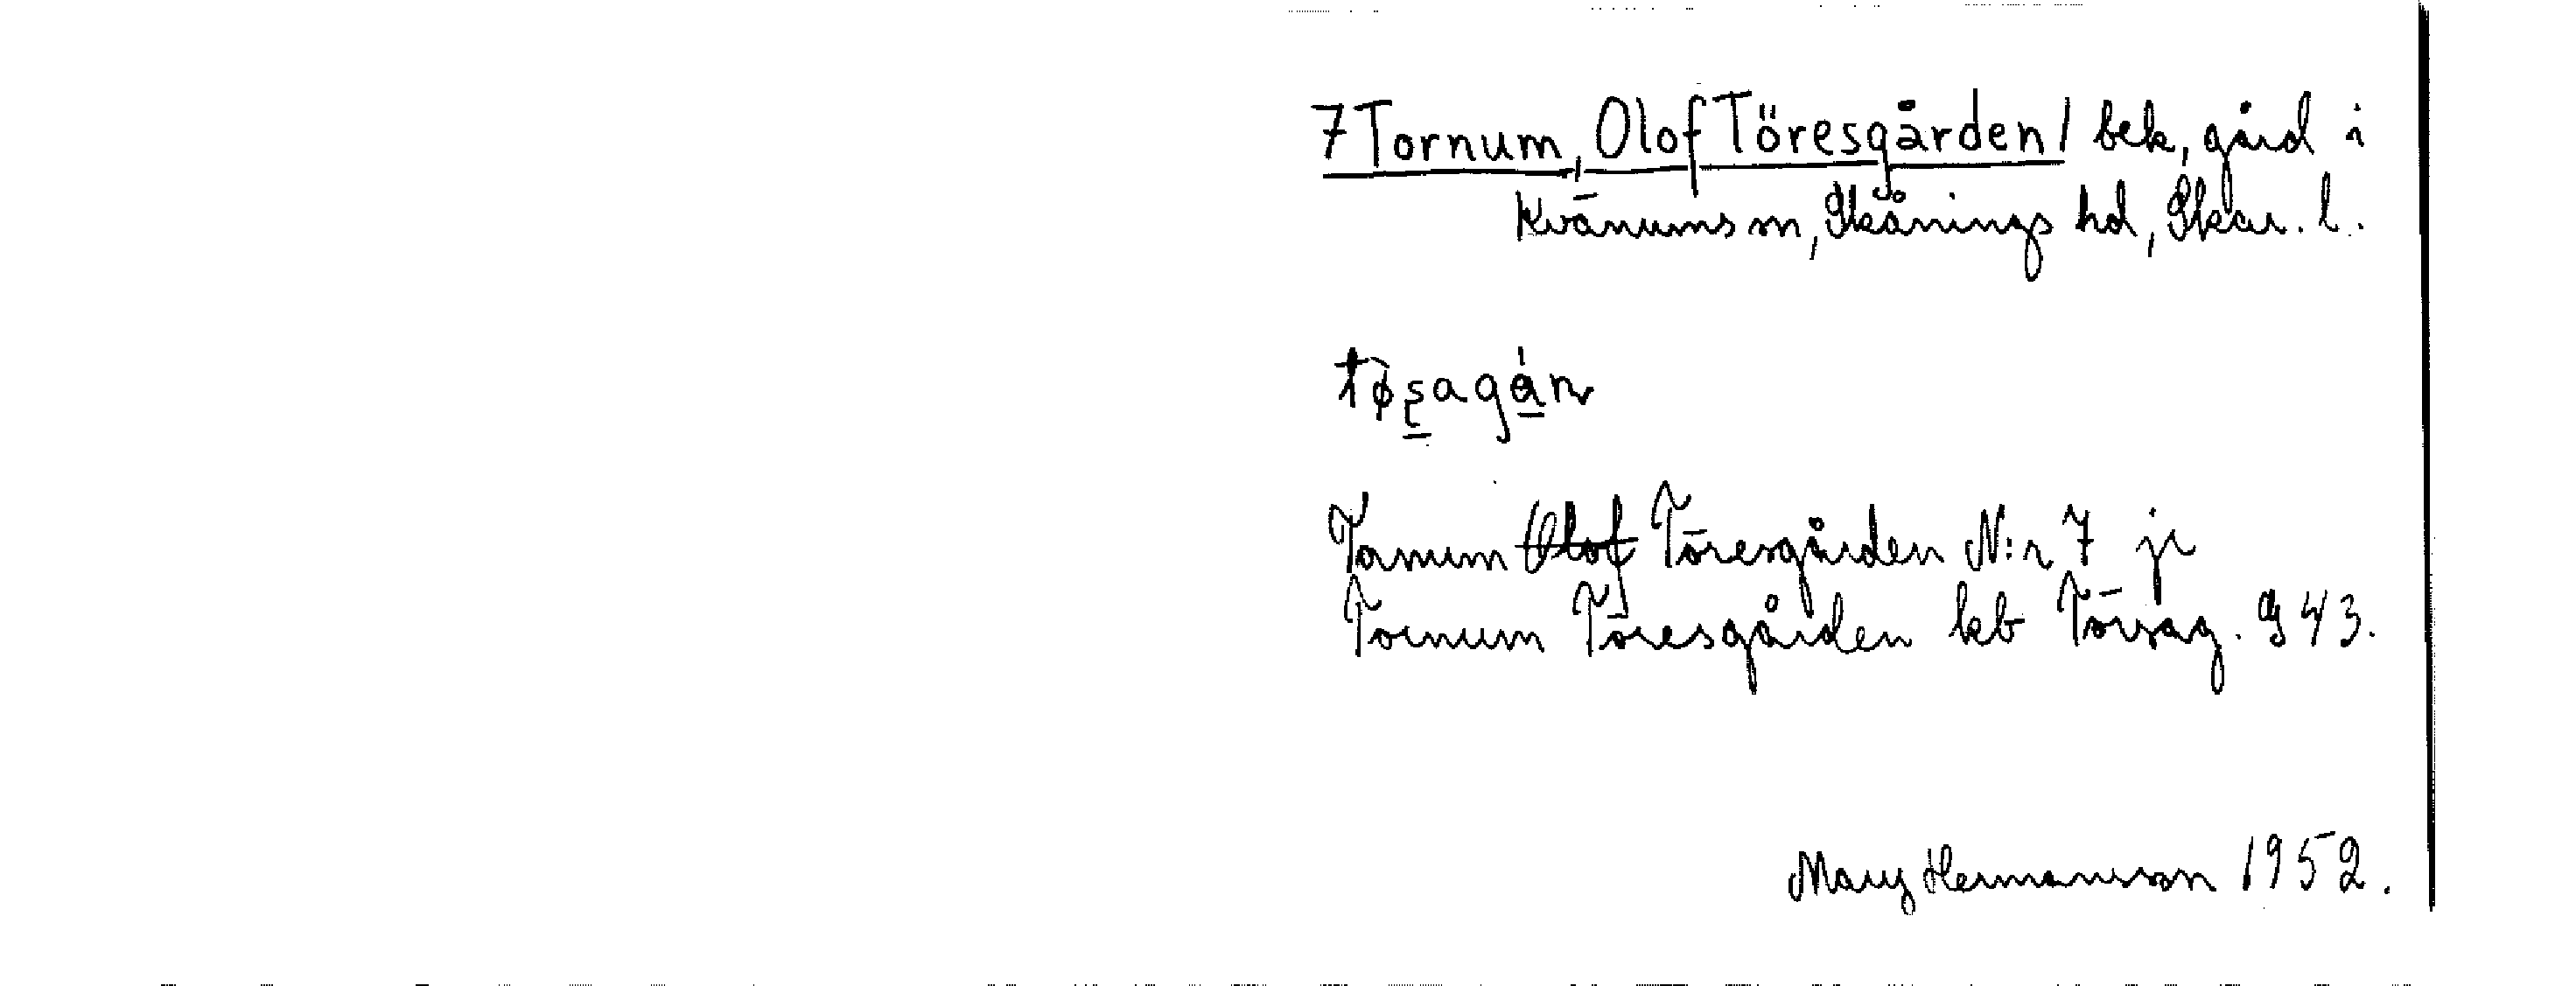 7 Tornum, Olof Töresgården / bek, gård i
Kvänums sn, Skånings hd, Skar. l.
tøsagán
Tornum Olof Töresgården N:r 7 jr
Tornum Töresgården kb Törsag. g 43.
Mary Hermansson 1952.